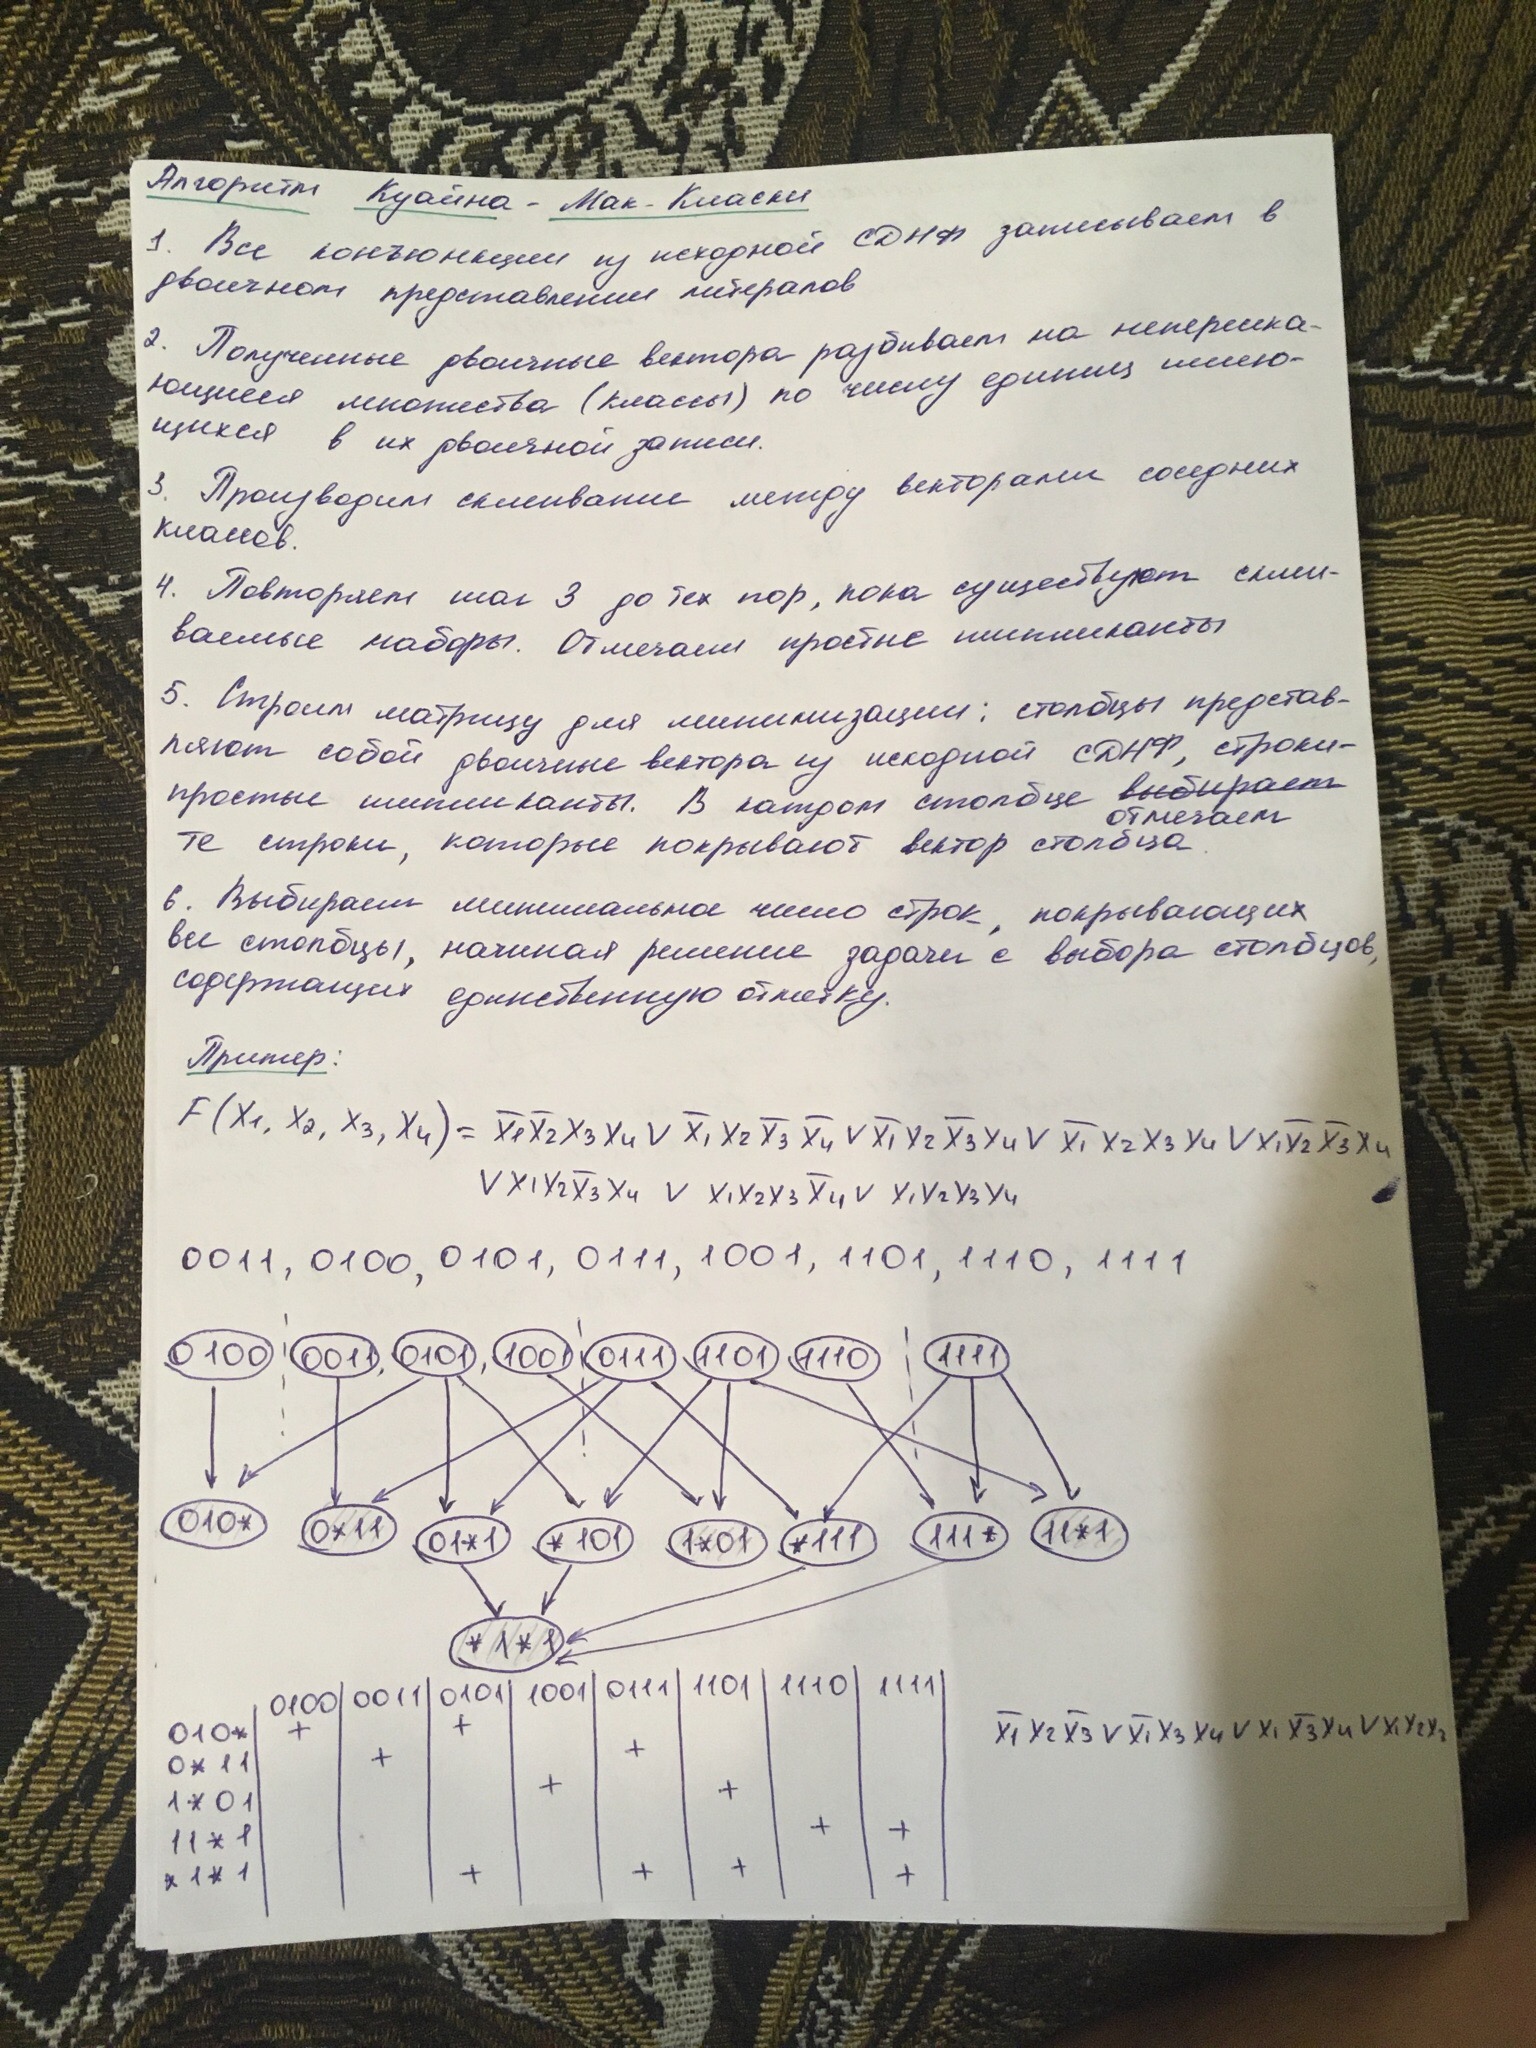 Алгоритм Куайна - Мак-Класки
1. Все конъюнкции из исходной СДНФ записываем в
двоичном представлении литералов
2. Полученные двоичные вектора разбиваем на непересека-
ющиеся множества (классы) по числу единиц имею-
щихся в их двоичной записи.
3. Производим склеивание между векторами соседних
классов.
4. Повторяем шаг 3 до тех пор, пока существуют склеи-
ваемые наборы. Отмечаем простые импликанты
5. Строим матрицу для минимизации: столбцы представ-
ляют собой двоичные вектора из исходной СДНФ, строки-
простые импликанты. В каждом столбце выбираем
отмечаем
те строки, которые покрывают вектор столбца.
6. Выбираем минимальное число строк, покрывающих
все столбцы, начиная решение задачи с выбора столбцов,
содержащих единственную отметку.
Пример:
F(x1, x2, x3, x4) = x̅1x̅2x3x4 V x̅1x2x̅3x̅4 V x̅1x2x̅3x4 V x̅1x2x3x4 V x1x̅2x̅3x4
V x1x2x̅3x4 V x1x2x3x̅4 V x1x2x3x4
0011, 0100, 0101, 0111, 1001, 1101, 1110, 1111
0100 0011, 0101, 1001 0111 1101 1110 1111
010* 0*11 01*1 *101 1*01 *111 111* 11*1
*1*1
0100 0011 0101 1001 0111 1101 1110 1111
010* + +
0*11 + +
1*01 + +
11*1 + +
*1*1 + + + +
x̅1x2x̅3 V x̅1x3x4 V x1x̅3x4 V x1x2x3